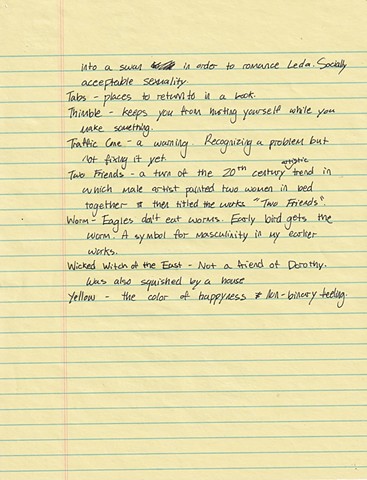 into a swan in order to romance Leda. Socially
acceptable sexuality.
Tabs - places to return to in a book.
Thimble - keeps you from hurting yourself while you
make something.
Traffic Cone - a warning. Recognizing a problem but
not fixing it yet.
Two Friends - a turn of the 20th century artistic trend in
which male artist painted two women in bed
together & then titled the works "Two Friends".
Worm - Eagles don't eat worms. Early bird gets the
worm. A symbol for masculinity in my earlier
works.
Wicked Witch of the East - Not a friend of Dorothy.
Was also squished by a house
Yellow - the color of happyness & non-binary feeling.